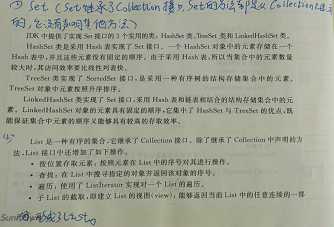 ① Set (Set继承了Collection接口,Set的方法都是从Collection继承
的,它没有声明其他方法)
JDK 中提供了实现 Set 接口的 3 个实用的类:HashSet 类、TreeSet 类和 LinkedHashSet 类。
HashSet 类是采用 Hash 表实现了 Set 接口。一个 HashSet 对象中的元素存储在一个
Hash 表中,并且这些元素没有固定的顺序。由于采用 Hash 表,所以当集合中的元素数量
较大时,其访问效率要比线性列表快。
TreeSet 类实现了 SortedSet 接口,是采用一种有序树的结构存储集合中的元素。
TreeSet 对象中元素按照升序排序。
LinkedHashSet 类实现了 Set 接口,采用 Hash 表和链表相结合的结构存储集合中的元
素。LinkedHashSet 对象的元素具有固定的顺序,它集中了 HashSet 与 TreeSet 的优点,既
能保证集合中元素的顺序又能够具有较高的存取效率。
List 是一种有序的集合,它继承了 Collection 接口。除了继承了 Collection 中声明的方
法,List 接口还增加了如下操作。
• 按位置存取元素:按照元素在 List 中的序号对其进行操作。
• 查找:在 List 中搜寻指定的对象并返回该对象的序号。
• 遍历:使用了 ListIterator 实现对一个 List 的遍历。
• 子 List 的截取,即建立 List 的视图(view),能够返回当前 List 中的任意连续的一部
List。